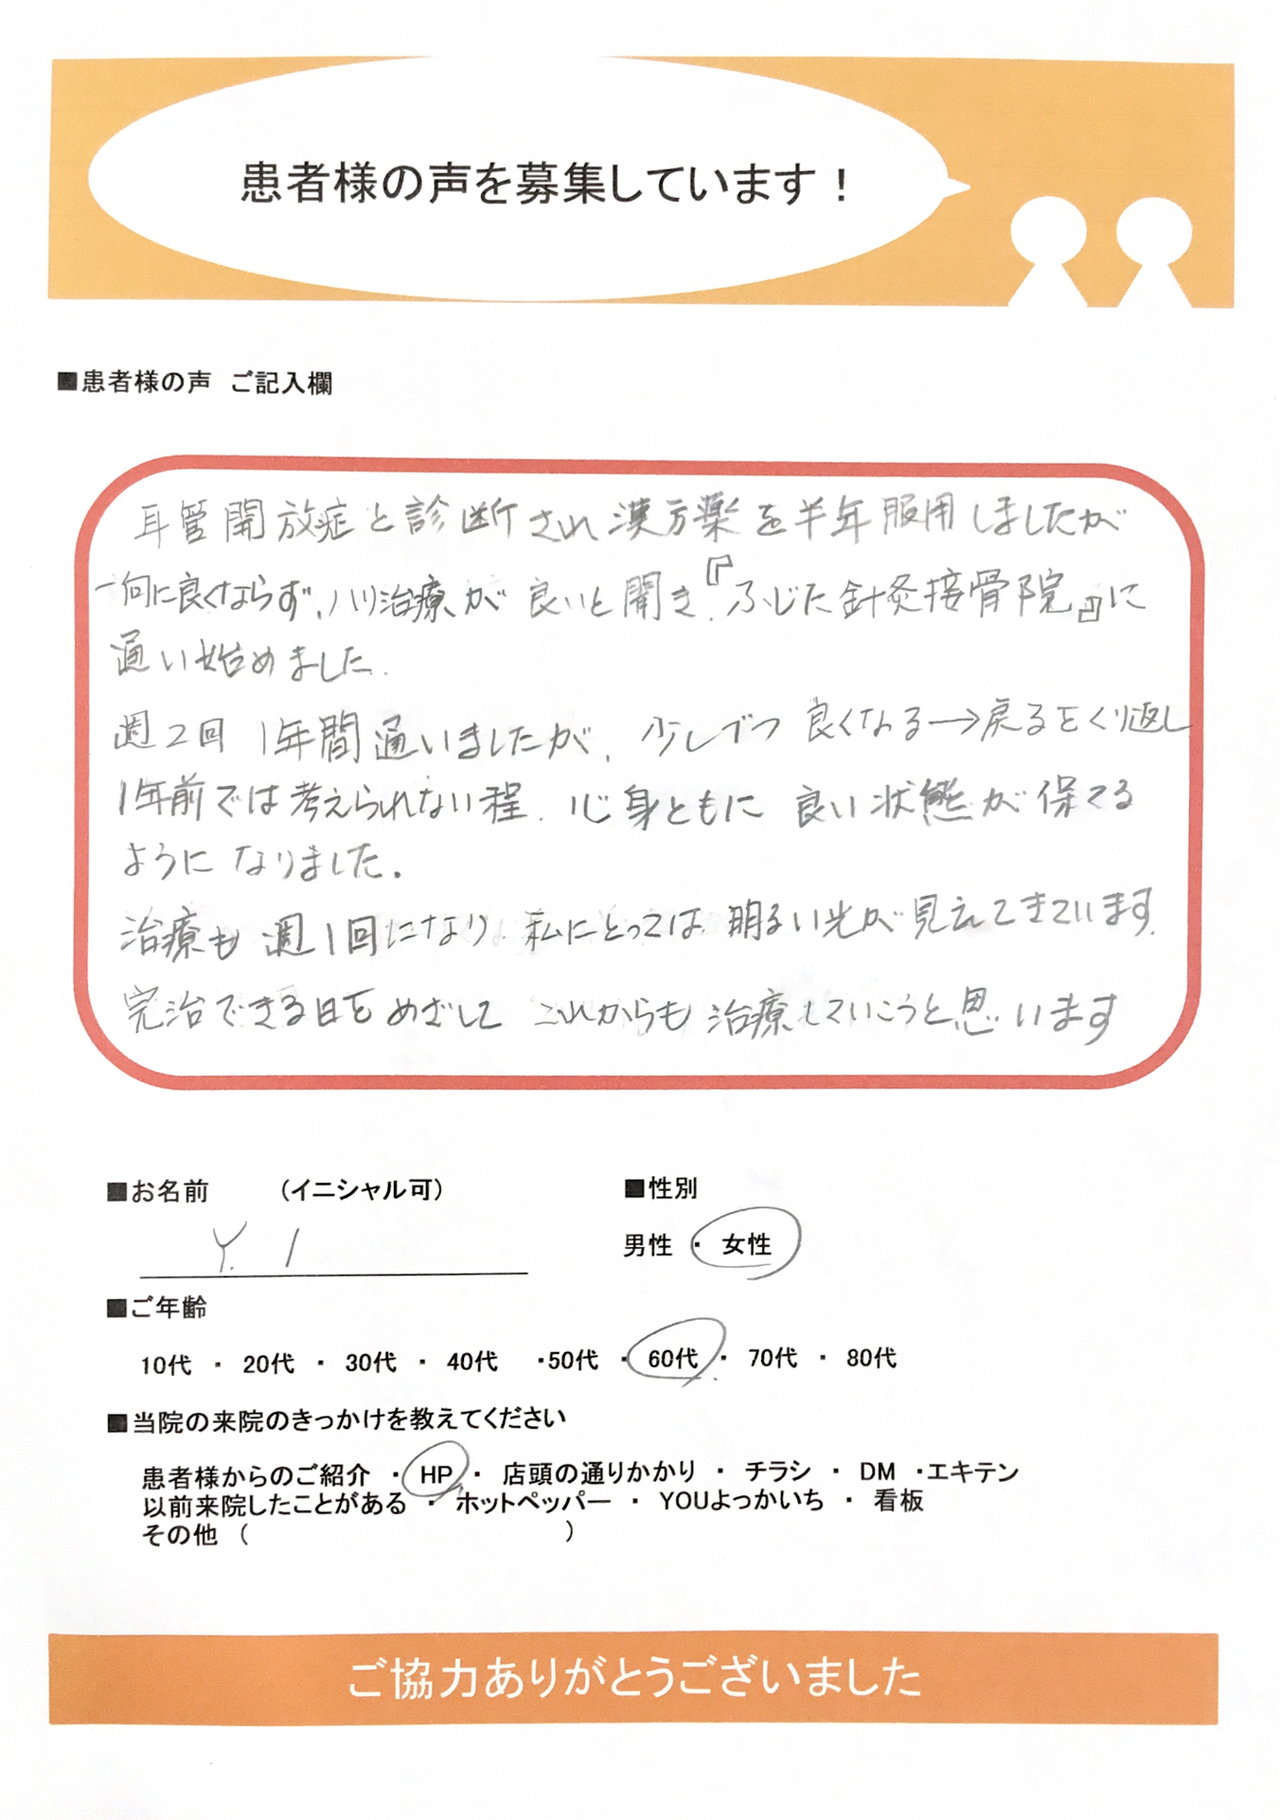 患者様の声を募集しています！
■患者様の声　ご記入欄
耳管開放症と診断され漢方薬を半年服用しましたが
一向に良くならず、ハリ治療が良いと聞き、『ふじた針灸接骨院』に
通い始めました。
週2回 1年間通いましたが、少しづつ 良くなる→戻るをくり返し
1年前では考えられない程、心身ともに 良い状態が保てる
ようになりました。
治療も週1回になり、私にとっては、明るい光が見えてきています。
完治できる日をめざして これからも治療していこうと思います
■お名前　　（イニシャル可）　　■性別
Y. I　　男性 ・ 女性
■ご年齢
10代 ・ 20代 ・ 30代 ・ 40代 ・50代 ・ 60代 ・ 70代 ・ 80代
■当院の来院のきっかけを教えてください
患者様からのご紹介 ・ HP ・ 店頭の通りかかり ・ チラシ ・ DM ・エキテン
以前来院したことがある ・ ホットペッパー ・ YOUよっかいち ・ 看板
その他 （　　　　　　　）
ご協力ありがとうございました